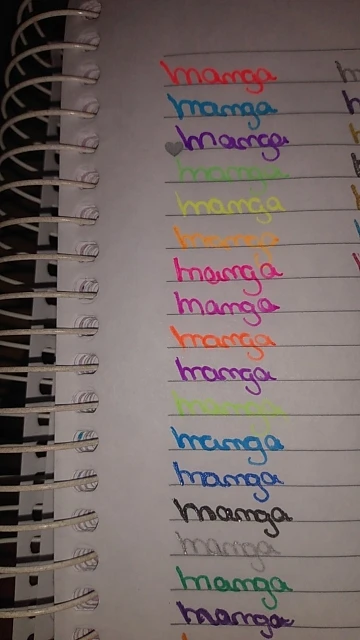 manga
manga
manga
manga
manga
manga
manga
manga
manga
manga
manga
manga
manga
manga
manga
manga
manga